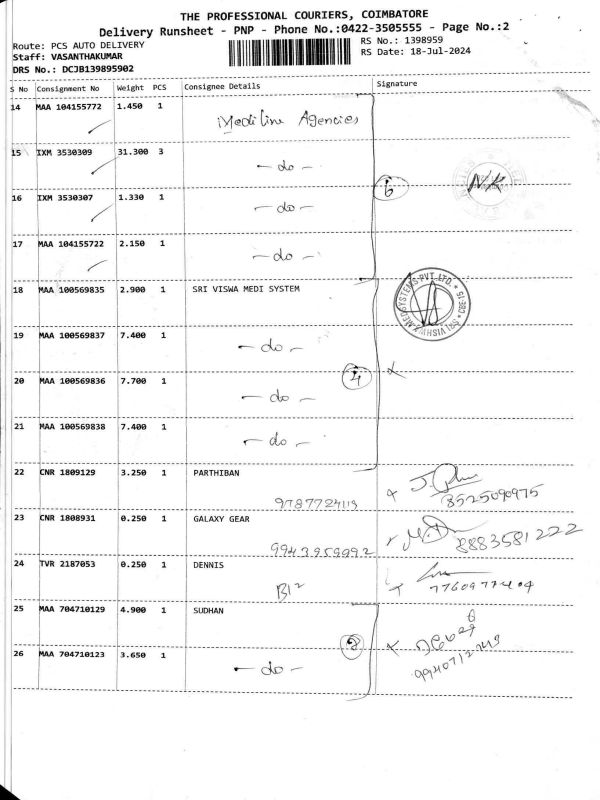 THE PROFESSIONAL COURIERS, COIMBATORE
Delivery Runsheet - PNP - Phone No.:0422-3505555 - Page No.:2
Route: PCS AUTO DELIVERY
RS No.: 1398959
Staff: VASANTHAKUMAR
RS Date: 18-Jul-2024
DRS No.: DCJB139895902
S No Consignment No Weight PCS Consignee Details Signature
14 MAA 104155772 1.450 1 Mediline Agencies
15 IXM 3530309 31.300 3 - do -
6 N.K
16 IXM 3530307 1.330 1 - do -
17 MAA 104155722 2.150 1 - do -
18 MAA 100569835 2.900 1 SRI VISWA MEDI SYSTEM
19 MAA 100569837 7.400 1 - do -
4 x
20 MAA 100569836 7.700 1 - do -
21 MAA 100569838 7.400 1 - do -
22 CNR 1809129 3.250 1 PARTHIBAN
9787724113 x 8525090975
23 CNR 1808931 0.250 1 GALAXY GEAR
9943959992 8883581222
24 TVR 2187053 0.250 1 DENNIS
B12 x 7760977404
25 MAA 704710129 4.900 1 SUDHAN
2 x
26 MAA 704710123 3.650 1 - do - 9940712743